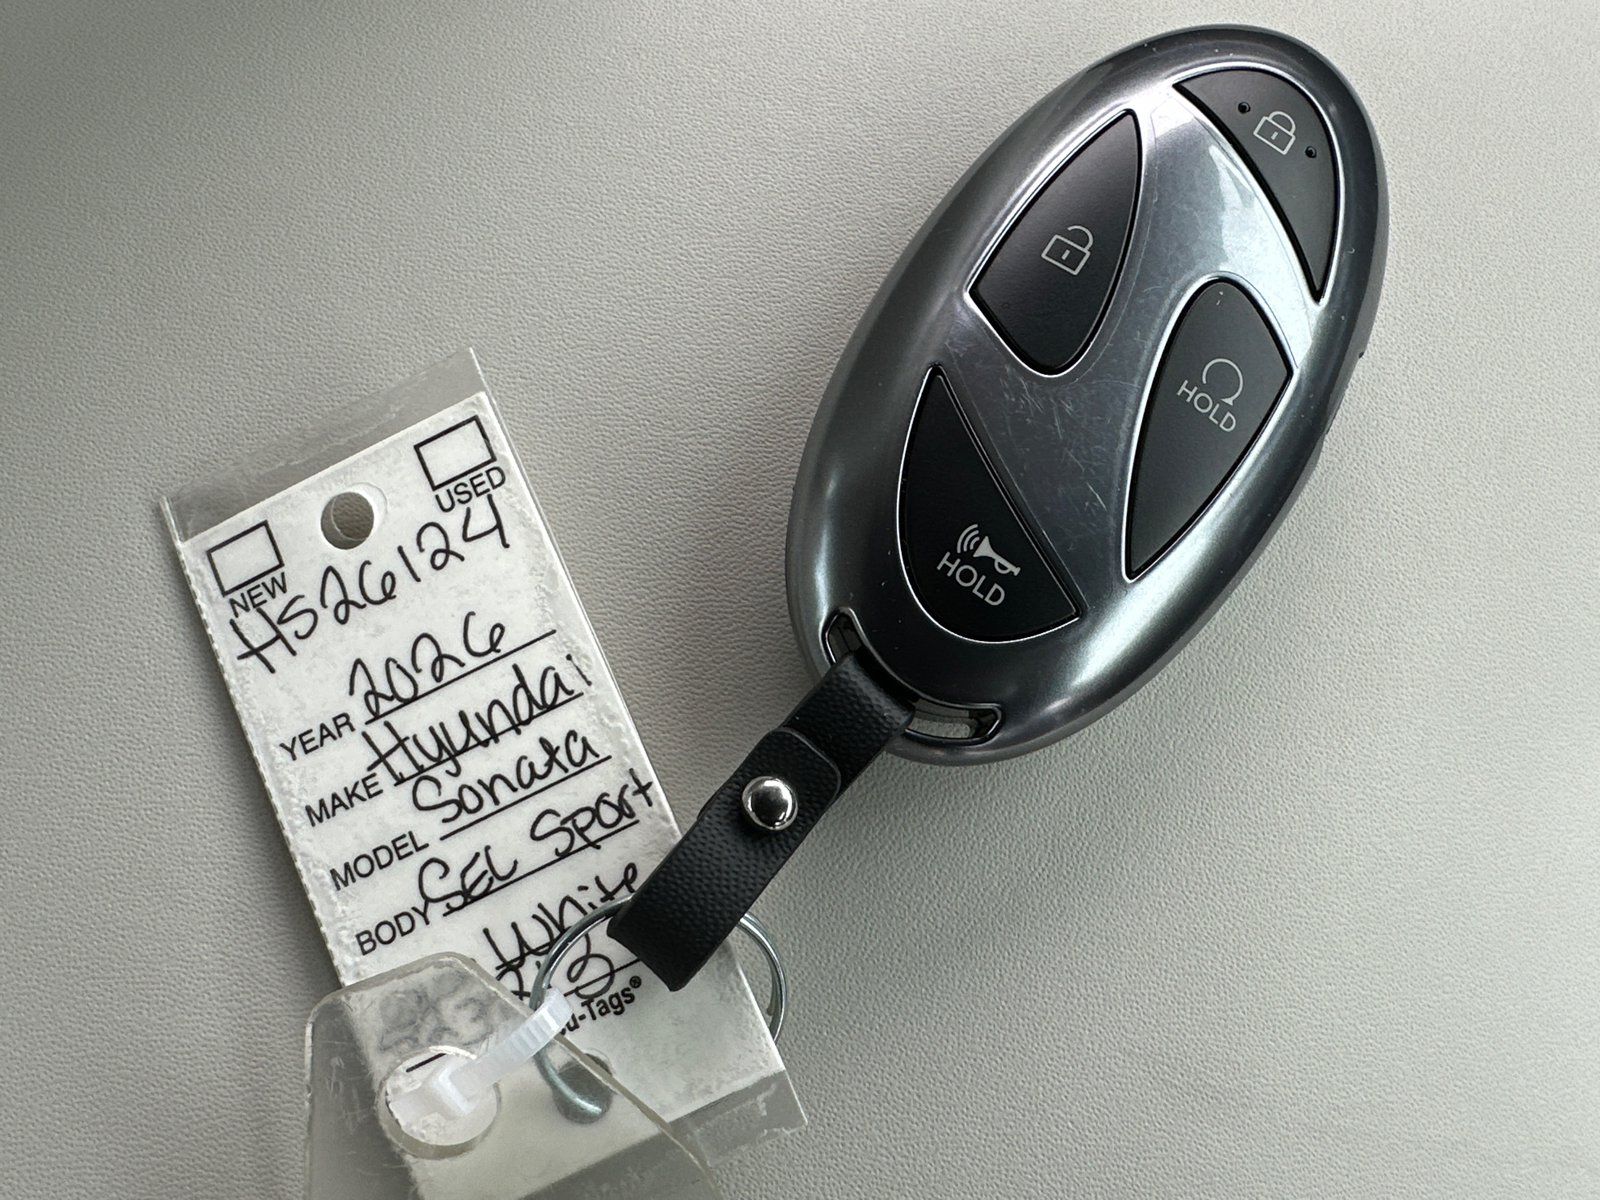 USED
NEW
HS26124
YEAR 2026
MAKE Hyundai
MODEL Sonata
BODY SEL Sport
White
-Tags®
HOLD
HOLD